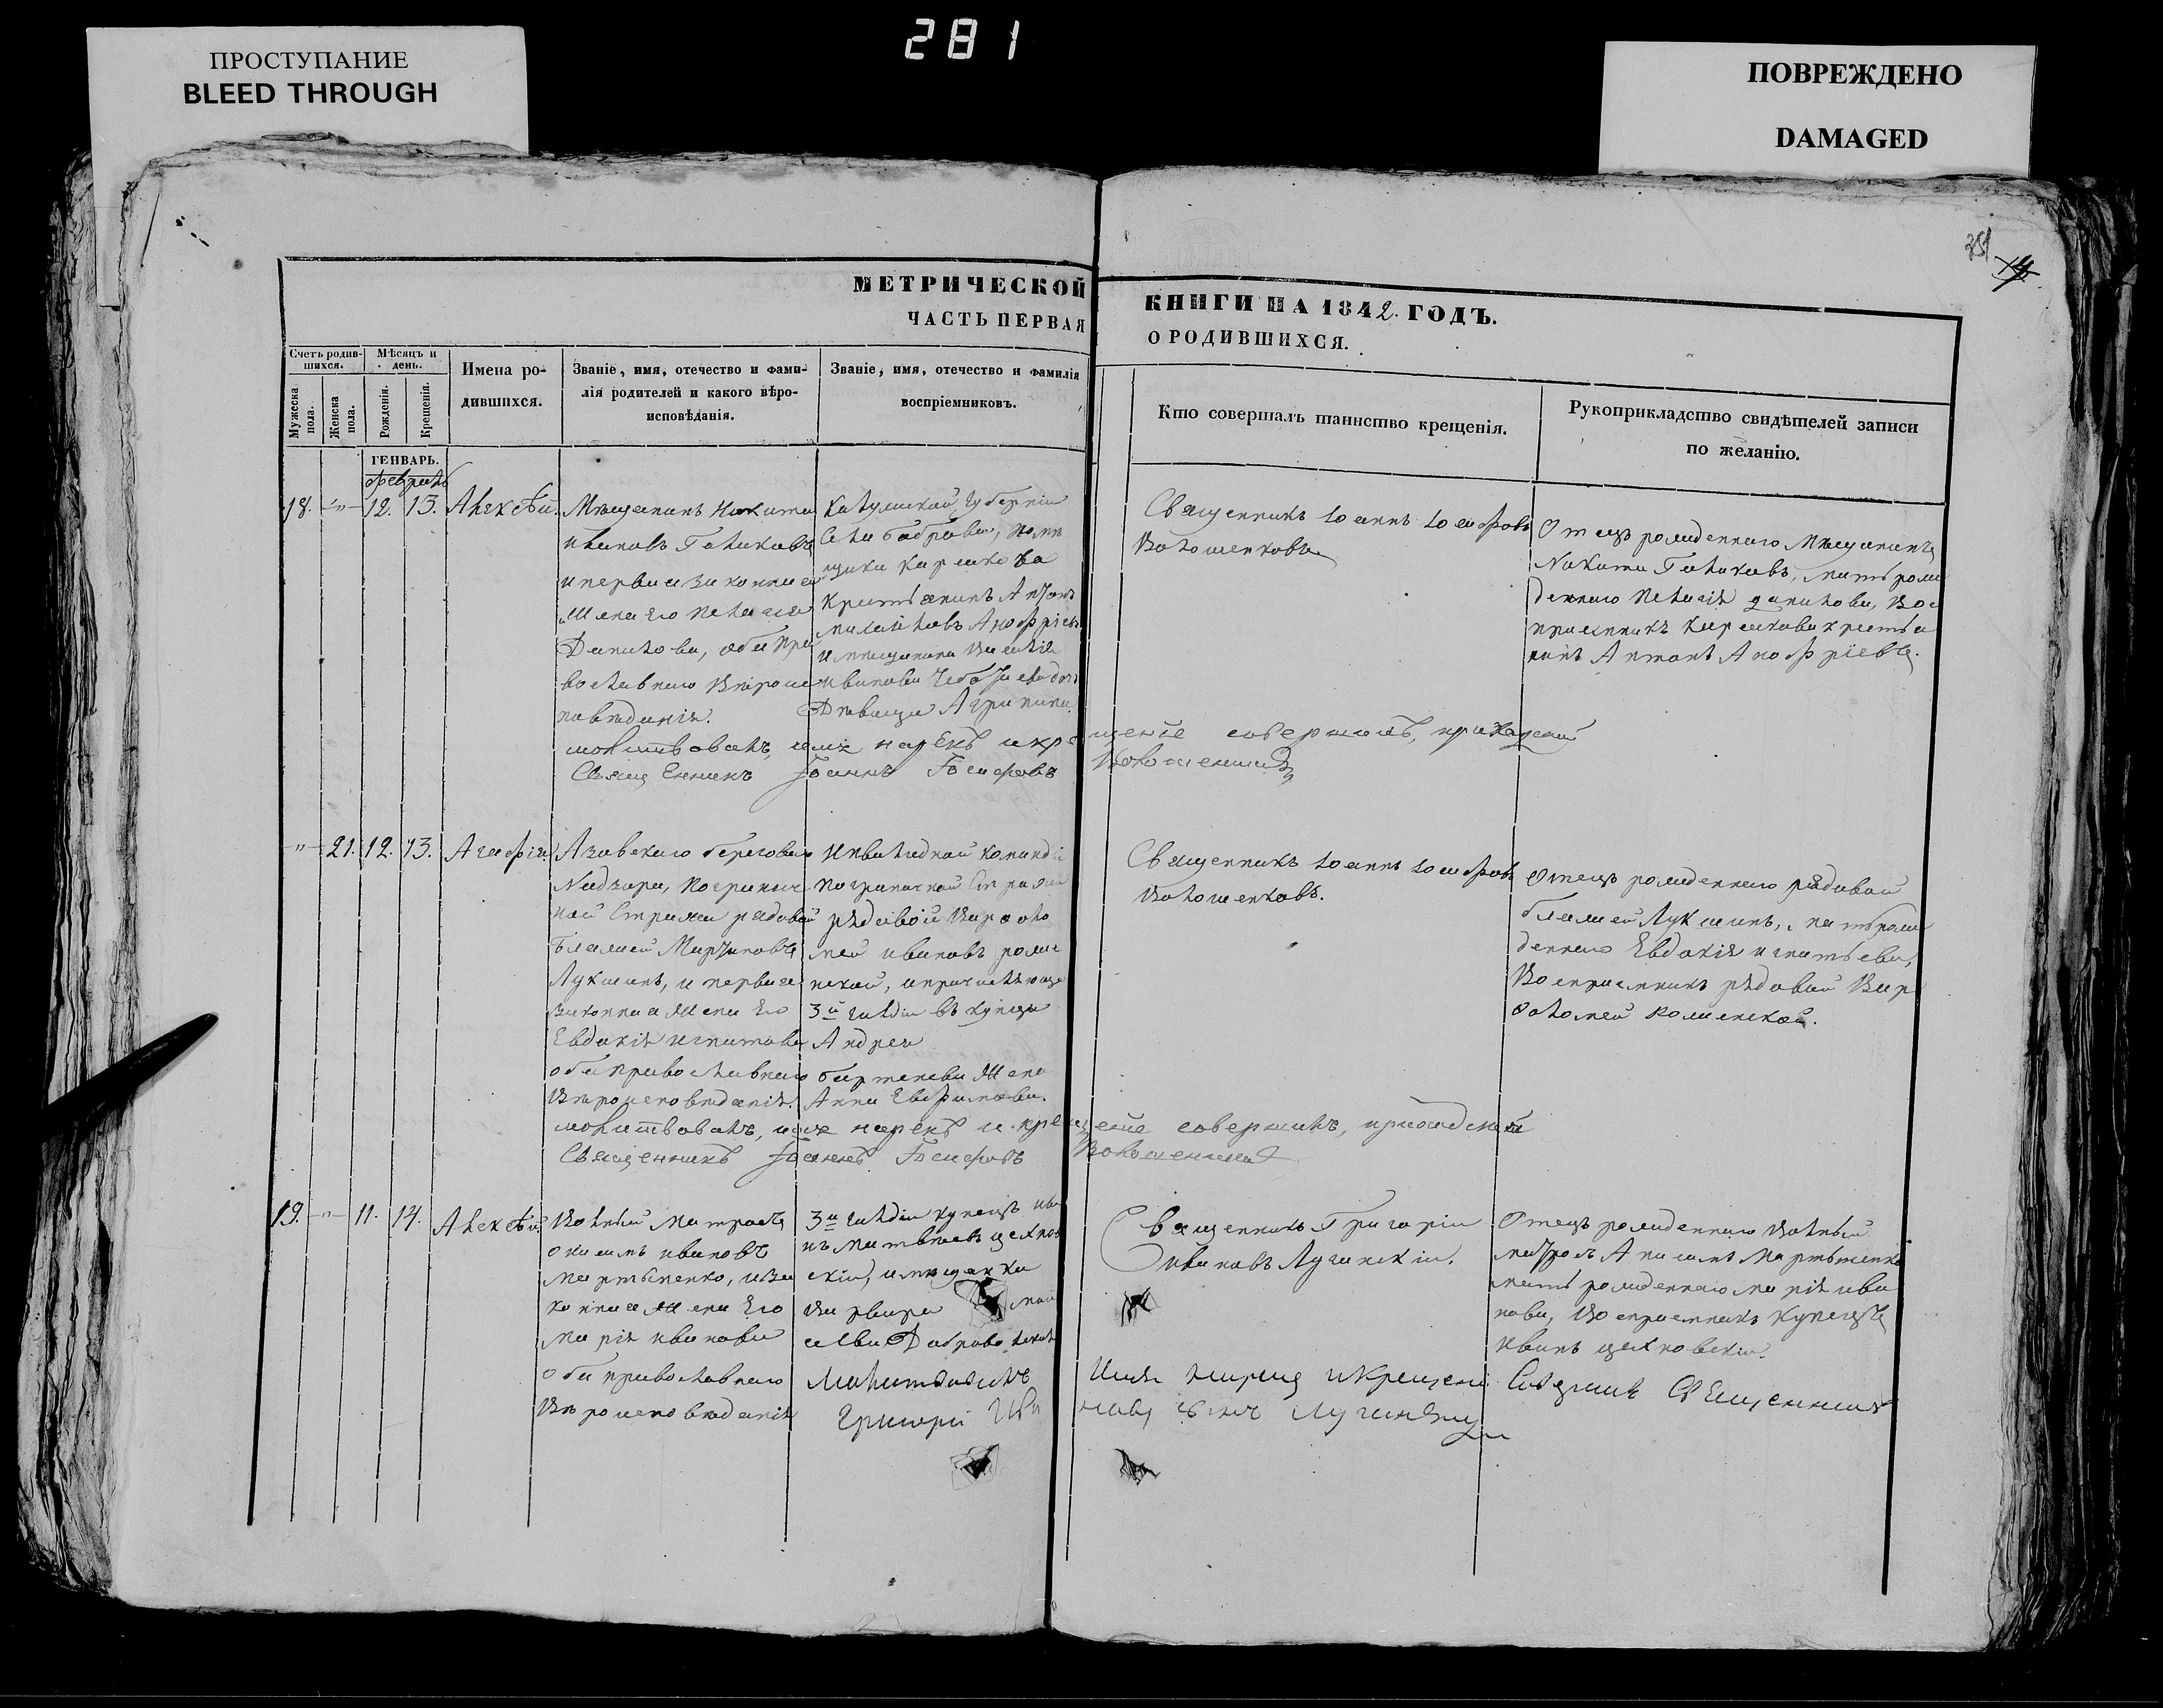 281
ПРОСТУПАНИЕ
BLEED THROUGH
ПОВРЕЖДЕНО
DAMAGED
351
МЕТРИЧЕСКОЙ
ЧАСТЬ ПЕРВАЯ
КНИГИ НА 1842. ГОДЪ.
О РОДИВШИХСЯ.
Счетъ родив-
шихся.
Мѣсяцъ и
день.
Мужеска
пола.
Женска
пола.
Рожденія.
Крещенія.
Имена ро-
дившихся.
Званіе, имя, отечество и фами-
лія родителей и какого вѣро-
исповѣданія.
Званіе, имя, отечество и фамилія
воспріемниковъ.
Кто совершалъ таинство крещенія.
Рукоприкладство свидѣтелей записи
по желанію.
ГЕНВАРЬ.
февраль
18. " 12. 13. Алексѣй.
Мѣщанинъ Никита
Ивановъ Голиковъ
и первая законная
жена его Пелагея
Данилова, оба пра
вославнаго вѣроис
повѣданія.
Калужской губерніи
села Боброва, помѣ
щика
крестьянинъ Антонъ
Михайловъ Анофріевъ
и мѣщанина Василія
Иванова дочь
Дѣвица Агрипина.
Священникъ Іоаннъ Іосифовъ
Волошенковъ
Отецъ рожденнаго мѣщанинъ
Никита Голиковъ, мать рож
деннаго Пелагія Данилова, вос
пріемникъ крестья
нинъ Антонъ Анофріевъ.
молитвовалъ, имя нарекъ и крещеніе совершилъ, приходскій
Священникъ Іоаннъ Іосифовъ Волошенковъ
" 21. 12. 13. Агафія
Азовскаго береговаго
Надзора, погранич
ной стражи рядовой
Мартиновъ
Лукшинъ, и первая
законная жена его
Евдокія Игнатова
оба православнаго
вѣроисповѣданія.
Инвалидной команды
пограничной стражи
рядовой Варѳоло
мей Ивановъ
3й гильдіи въ купцы
Андрея
жена
Анна Евфимова.
Священникъ Іоаннъ Іосифовъ
Волошенковъ.
Отецъ рожденнаго рядовой
Лукшинъ, мать рож
деннаго Евдокія Игнатьева,
Воспріемникъ рядовой Вар
ѳоломей
молитвовалъ, имя нарекъ и крещеніе совершилъ, приходскій
Священникъ Іоаннъ Іосифовъ Волошенковъ
19. " 11. 14. Алексѣй.
Вольный матросъ
Ивановъ
Мартыненко, и за
конная жена его
Марія Иванова
оба православнаго
вѣроисповѣданія
3й гильдіи купецъ Ива
нъ Матвѣевъ Цехнов
скій, и мѣщанка
Варвара
Священникъ Григорій
Ивановъ Лучинскій.
Отецъ рожденнаго вольный
матросъ Мартыненко
мать рожденнаго Марія Ива
нова, воспріемникъ купецъ
Иванъ Цехновскій.
Молитвовалъ имя нарекъ и крещеніе Совершилъ Священникъ
Григорій Ивановъ сынъ Лучинскій